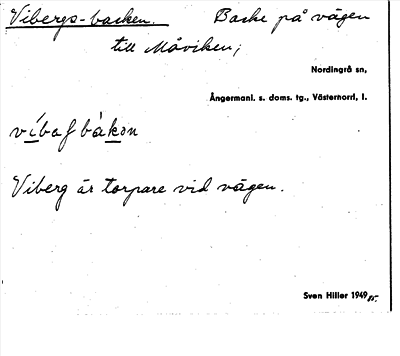 Vibergs-backen. Backe på vägen
till Måviken;
Nordingrå sn,
Ångermanl. s. doms. tg., Västernorrl, l.
Viberg är torpare vid vägen.
Sven Hiller 1949